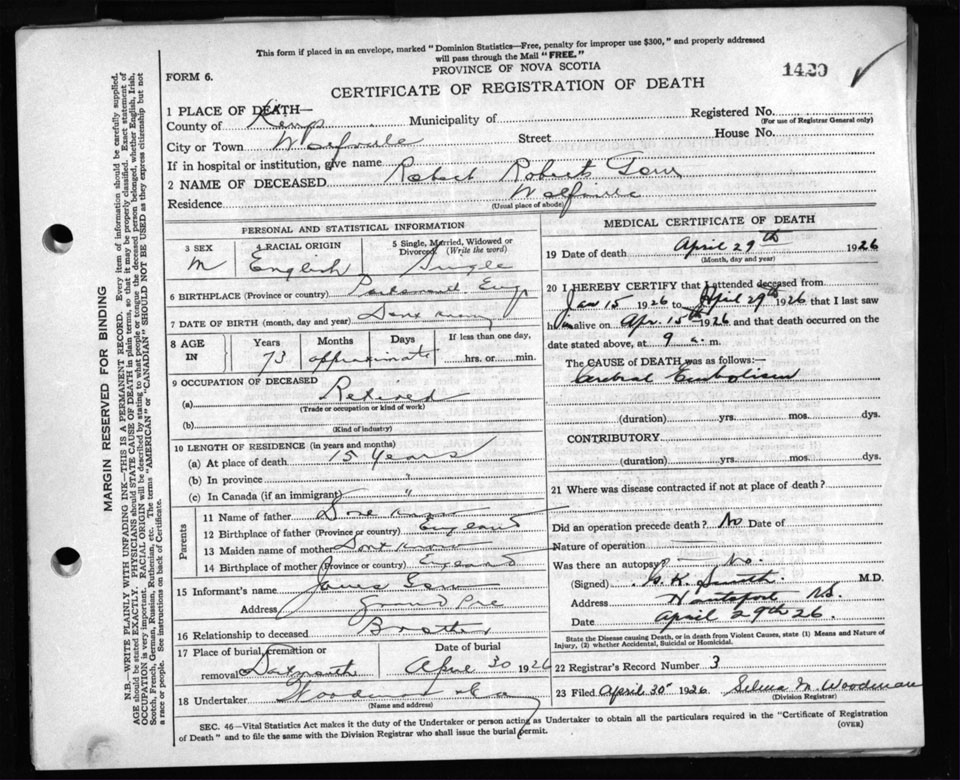 This form if placed in an envelope, marked "Dominion Statistics—Free, penalty for improper use $300," and properly addressed
will pass through the Mail "FREE."
PROVINCE OF NOVA SCOTIA
FORM 6.
1420
CERTIFICATE OF REGISTRATION OF DEATH
1 PLACE OF DEATH—
County of Kings Municipality of Registered No.
(For use of Registrar General only)
City or Town Wolfville Street House No.
If in hospital or institution, give name
2 NAME OF DECEASED Robert Roberts
Residence Wolfville
(Usual place of abode)
PERSONAL AND STATISTICAL INFORMATION
3 SEX M
4 RACIAL ORIGIN English
5 Single, Married, Widowed or Divorced (Write the word) Single
6 BIRTHPLACE (Province or country) Eng
7 DATE OF BIRTH (month, day and year) Dont know
8 AGE IN Years 73 Months approximate Days If less than one day, hrs. or min.
9 OCCUPATION OF DECEASED
(a) Retired
(Trade or occupation or kind of work)
(b)
(Kind of industry)
10 LENGTH OF RESIDENCE (in years and months)
(a) At place of death 15 Years
(b) In province "
(c) In Canada (if an immigrant) "
Parents
11 Name of father Dont know
12 Birthplace of father (Province or country) England
13 Maiden name of mother Dont know
14 Birthplace of mother (Province or country) England
15 Informant's name James
Address Grand Pre
16 Relationship to deceased Brother
17 Place of burial, cremation or removal
Date of burial April 30 1926
18 Undertaker Woodman
(Name and address)
MEDICAL CERTIFICATE OF DEATH
19 Date of death April 29th 1926
(Month, day and year)
20 I HEREBY CERTIFY that I attended deceased from
Jan 15 1926 to April 29th 1926 that I last saw
him alive on Apr. 15th 1926 and that death occurred on the
date stated above, at 9 a. m.
The CAUSE of DEATH was as follows:—
Cerebral Embolism
(duration) yrs. mos. dys.
CONTRIBUTORY
(duration) yrs. mos. dys.
21 Where was disease contracted if not at place of death?
Did an operation precede death? No Date of
Nature of operation
Was there an autopsy? No.
(Signed) K. Smith. M.D.
Address Hantsport NS.
Date April 29th 26.
State the Disease causing Death, or in death from Violent Causes, state (1) Means and Nature of
Injury, (2) whether Accidental, Suicidal or Homicidal.
22 Registrar's Record Number 3
23 Filed April 30" 1926. Selina M. Woodman
(Division Registrar)
SEC. 46—Vital Statistics Act makes it the duty of the Undertaker or person acting as Undertaker to obtain all the particulars required in the "Certificate of Registration
of Death" and to file the same with the Division Registrar who shall issue the burial permit.
(OVER)
MARGIN RESERVED FOR BINDING
N.B.—WRITE PLAINLY WITH UNFADING INK—THIS IS A PERMANENT RECORD. Every item of information should be carefully supplied.
AGE should be stated EXACTLY. PHYSICIANS should STATE CAUSE OF DEATH in plain terms, so that it may be properly classified. Exact statement of
OCCUPATION is very important. RACIAL ORIGIN will be described by stating to what people or tongue the deceased person belonged, whether English, Irish,
Scotch, French, German, Russian, Ruthenian, etc. The terms "AMERICAN" or "CANADIAN" SHOULD NOT BE USED as they express citizenship but not
a race or people. See instructions on back of Certificate.